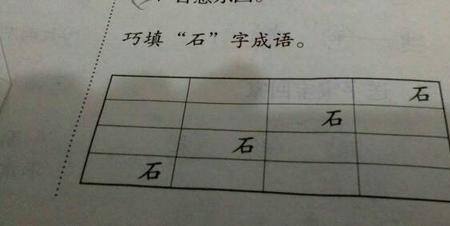 巧填“石”字成语。
石
石
石
石